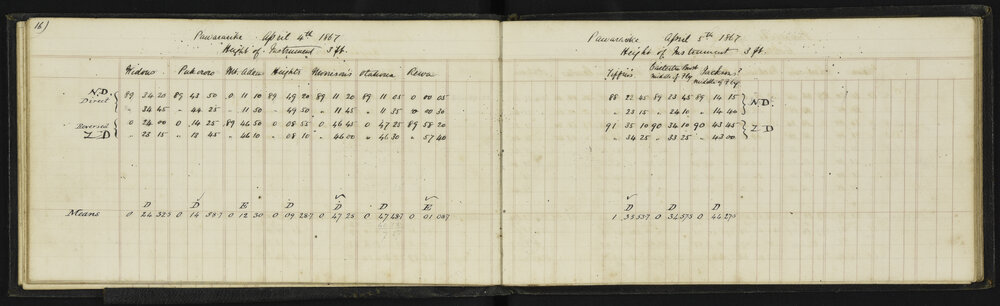 16)
Pawarenke April 4th 1867
Height of Instrument 3 ft.
Widows Pukeroro Mt. Eden Heights Morrison's Otahuhu Rewa
N.D. Direct 89 34 20 89 43 50 0 11 10 89 49 20 89 11 20 89 11 05 0 00 05
" 34 45 " 44 25 " 11 50 " 49 50 " 11 45 " 11 35 0 00 30
Reversed Z D 0 24 00 0 14 25 89 46 50 0 08 55 0 46 45 0 47 25 89 58 20
" 23 15 " 13 45 " 46 10 " 08 10 " 46 00 " 46 30 " 57 40
D D E D D D E
Means 0 24 325 0 14 387 0 12 30 0 09 287 0 47 25 0 47 487 0 01 087
Pawarenke April 5th 1867
Height of Instrument 3 ft.
middle of Fly Jackson's
middle of Fly
88 22 45 89 23 45 89 14 15 N.D.
" 23 15 " 24 10 " 14 40
91 35 10 90 34 10 90 43 45 Z D
" 34 25 " 33 25 " 43 00
D D D
1 35 537 0 34 575 0 44 275